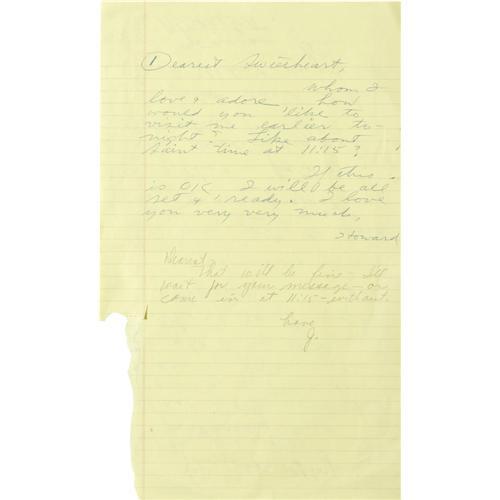 1 Dearest Sweetheart,
Whom I
love & adore how
would you like to
visit me earlier to-
night? Like about
paint time at 11:15?
If this
is OK I will be all
set & ready. I love
you very very much,
Howard
Dearest,
That will be fine - I'll
wait for your message - or
come in at 11:15 - without.
Love
J.